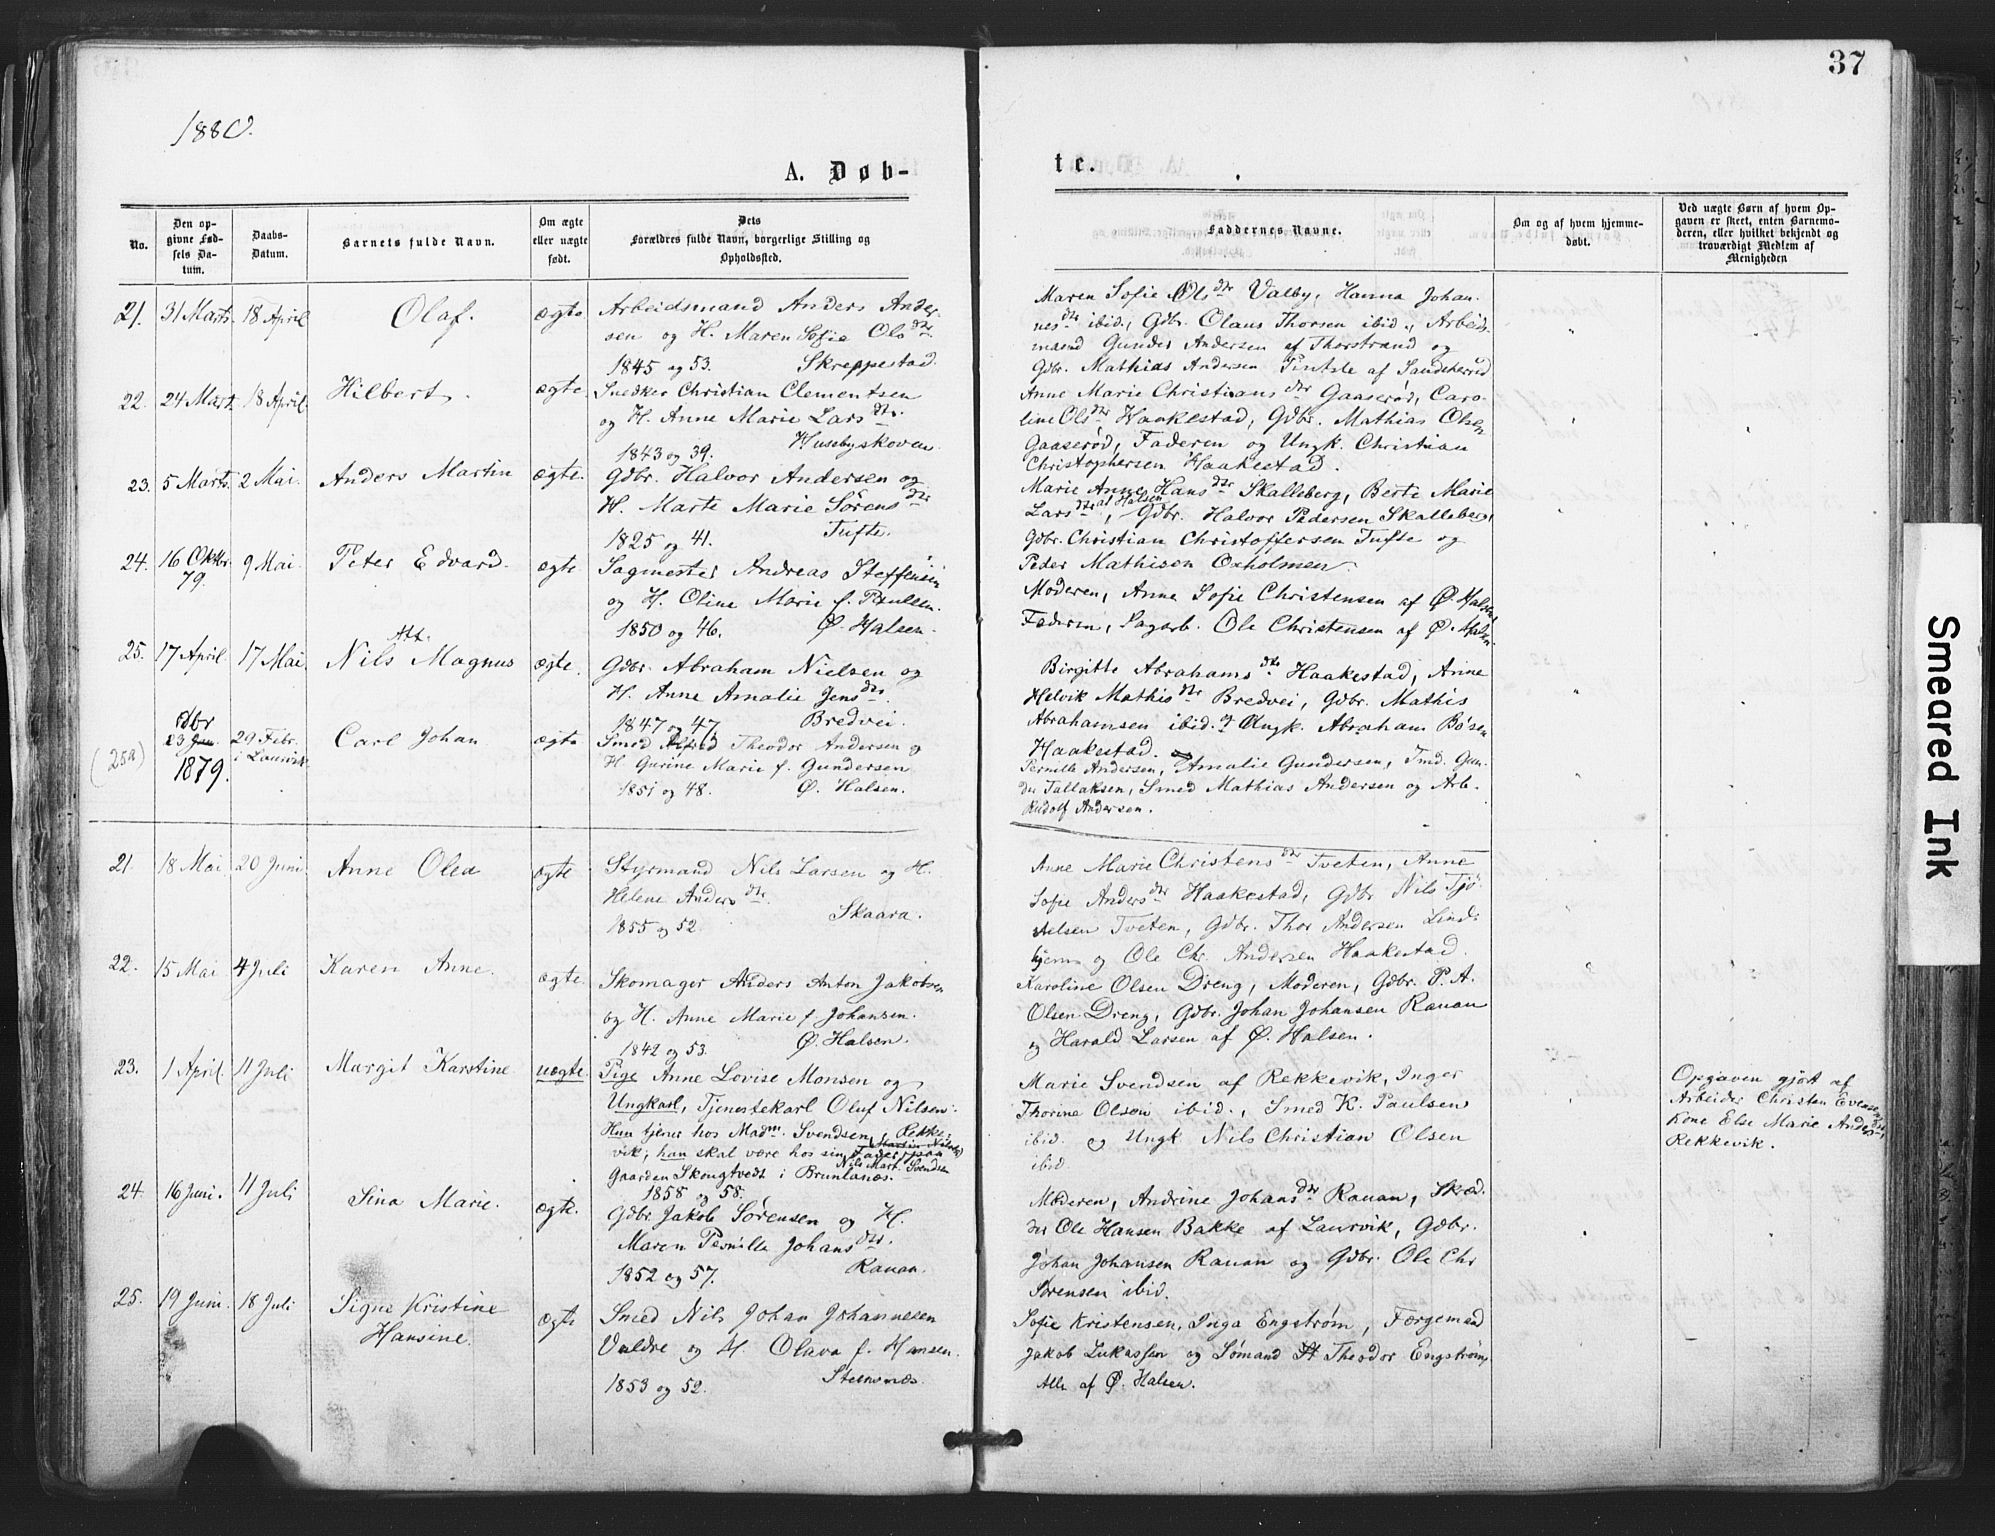 37
1880.
A. Døb-
te.
No.
Den op-
givne Fød-
sels Da-
tum.
Daabs-
Datum.
Barnets fulde Navn.
Om ægte
eller uægte
født.
Dets
Forældres fulde Navn, borgerlige Stilling og
Opholdssted.
Faddernes Navne.
Om og af hvem hjemme-
døbt.
Ved uægte Børn af hvem Op-
gaven er skeet, enten Barnemo-
deren, eller hvilket bekjendt og
troværdigt Medlem af
Menigheden
21. 31 Marts. 18 April Olaf. ægte
Arbeidsmand Anders Ander-
sen og H. Maren Sofie Olsdtr.
1845 og 53. Skreppestad.
Maren Sofie Olsdtr Valby, Hanna Johan-
nesdtr ibid., Gdbr. Olaus Thorsen ibid., Arbeids
mand Gunder Andersen af Thorstrand og
Gdbr. Mathias Andersen af Sandeherred
22. 24 Marts 18 April. Hilbert. ægte.
Snedker Christian Clementsen
og H. Anne Marie Larsdtr.
1843 og 39. Husebyskoven.
Anne Marie Christiansdtr Gaaserød, Caro-
line Olsdtr Haakestad, Gdbr. Mathias Olsen
Gaaserød, Faderen og Ungk. Christian
Christophersen Haakestad.
23. 5 Marts. 2 Mai. Anders Martin ægte.
Gdbr. Halvor Andersen og
H. Marte Marie Sørensdtr
1825 og 41. Tufte.
Marie Anne Hansdtr Skalleberg, Berte Marie
Larsdtr af Halsen, Gdbr. Halvor Pedersen Skalleberg,
Gdbr. Christian Christoffersen Tufte og
Peder Mathison Oxholmen.
24. 16 Oktbr. 79. 9 Mai Peter Edvard. ægte
Sagmester Andreas Steffensen
og H. Oline Marie f. Paulsen.
1850 og 46. Ø. Halsen.
Moderen, Anne Sofie Christensen af Ø. Halsen,
Faderen, Sagarb. Ole Christensen af Ø. Halsen.
25. 17 April. 17 Mai Nils Magnus ægte.
Gdbr. Abraham Nielsen og
H. Anne Amalie Jensdtr.
1847 og 47. Bredvei.
Birgitte Abrahamsdtr Haakestad, Anne
Helvik Mathisdtr Bredvei, Gdbr. Mathis
Abrahamsen ibid. og Ungk. Abraham Bøsen
Haakestad.
(25a) 23 Jan. 1879. 29 Febr. i Laurvik Carl Johan ægte
Smed Alfred Theodor Andersen og
H. Gurine Marie f. Gundersen
1851 og 48. Ø. Halsen.
Pernille Andersen, Amalie Gundersen, Tmd. Gun-
der Tallaksen, Smed Mathias Andersen og Arb.
Rudolf Andersen.
21. 18 Mai. 20 Juni Anne Olea ægte
Styrmand Nils Larsen og H.
Helene Andersdtr.
1855 og 52. Skaara.
Anne Marie Christensdtr Tveten, Anne
Sofie Andersdtr Haakestad, Gdbr Nils Tjø-
stelsen Tveten, Gdbr. Thor Andersen Lind-
hjem og Ole Chr. Andersen Haakestad.
22. 15 Mai 4 Juli Karen Anne. ægte.
Skomager Anders Anton Jakobsen
og H. Anne Marie f. Johansen.
1842 og 53. Ø. Halsen.
Karoline Olsen Dreng, Moderen, Gdbr. P. A.
Olsen Dreng, Gdbr. Johan Johansen Rauan
og Harald Larsen af Ø. Halsen.
23. 1 April. 11 Juli Margit Karstine uægte.
Pige Anne Lovise Monsen og
Ungkarl, Tjenestekarl Oluf Nilsen.
Hun tjener hos Madm. Svendsen, Rekke-
vik, han skal være hos sin Fader paa
Nils Mart. Svendsen
Gaarden Skengtvedt i Brunlanæs.
1858 og 58.
Marie Svendsen af Rekkevik, Inger
Thorine Olson ibid., Smed K. Paulsen
ibid. og Ungk Nils Christian Olsen
ibid.
Opgaven gjort af
Arbeider Christen Evensens
Kone Else Marie Andersdtr,
Rekkevik.
24. 16 Juni. 11 Juli Sina Marie. ægte.
Gdbr. Jakob Sørensen og H.
Maren Pernille Johansdtr.
1852 og 57. Rauan.
Moderen, Andrine Johansdtr Rauan, Skræd-
der Ole Hansen Bakke af Laurvik, Gdbr.
Johan Johansen Rauan og Gdbr. Ole Chr
Sørensen ibid.
25. 19 Juni. 18 Juli Signe Kristine
Hansine. ægte
Smed Nils Johan Johannesen
Valdre og H. Olava f. Hansen.
1853 og 52. Steensnæs.
Sofie Kristensen, Inga Engstrøm, Færgemand
Jakob Lukassen og Sømand Theodor Engstrøm,
Alle af Ø. Halsen.
Smeared Ink